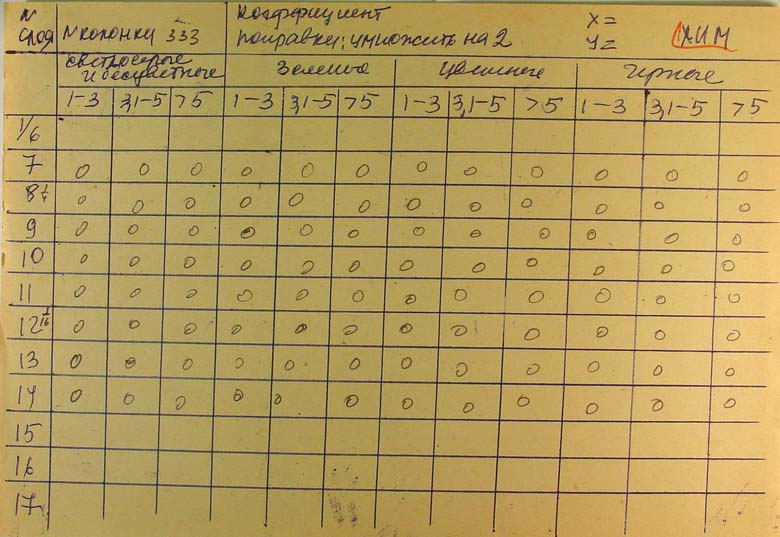 N Коэффициент X=
слоя N колонки 333 поправки: умножить на 2 У= ХИМ
светлосерые
и бесцветные Зеленые Черные
1-3 3,1-5 >5 1-3 3,1-5 >5 1-3 3,1-5 >5 1-3 3,1-5 >5
1/6
7 0 0 0 0 0 0 0 0 0 0 0 0
8 1/4 0 0 0 0 0 0 0 0 0 0 0 0
9 0 0 0 0 0 0 0 0 0 0 0 0
10 0 0 0 0 0 0 0 0 0 0 0 0
11 0 0 0 0 0 0 0 0 0 0 0 0
12 1/16 0 0 0 0 0 0 0 0 0 0 0 0
13 0 0 0 0 0 0 0 0 0 0 0 0
14 0 0 0 0 0 0 0 0 0 0 0 0
15
16
17